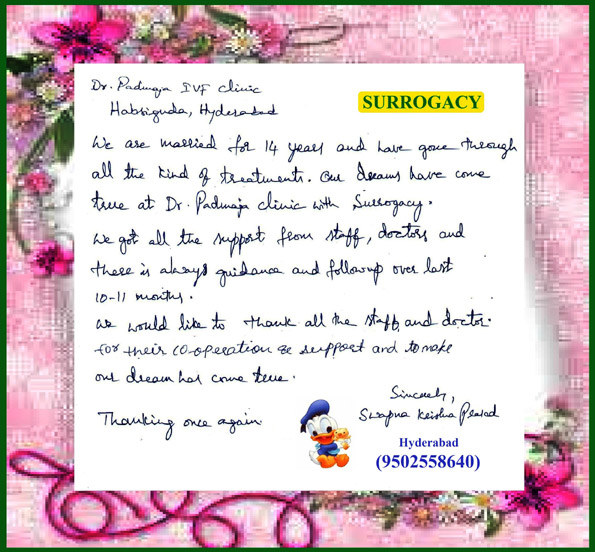 Dr. Padmaja IVF clinic
Habsiguda, Hyderabad
SURROGACY
We are married for 14 years and have gone through
all the kind of treatments. Our dreams have come
true at Dr. Padmaja clinic with Surrogacy.
We got all the support from staff, doctors and
there is always guidance and followup over last
10-11 months.
We would like to thank all the staff, and doctor.
for their co-operation & support and to make
our dream has come true.
Thanking once again.
Sincerely,
Swapna Krishna Prasad
Hyderabad
(9502558640)